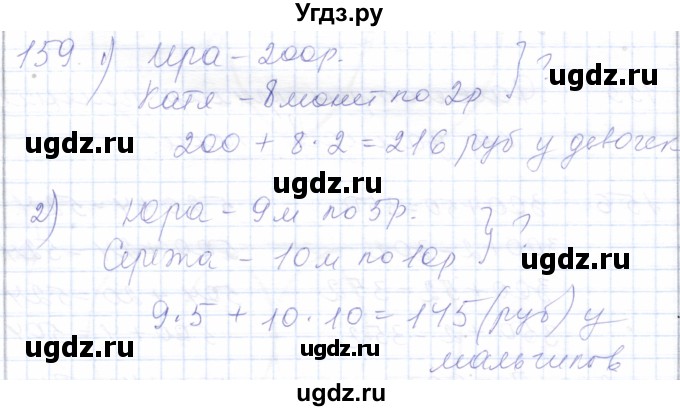 Угдз.ру
159. 1) Ира – 200р.
Катя – 8 монет по 2р } ?
ugdz.ru ugdz.ru
200 + 8·2 = 216 руб у девочек
ugdz.ru ugdz.ru
ugdz.ru
2) Юра – 9м по 5р.
Сережа – 10м по 10р } ?
ugdz.ru ugdz.ru
9·5 + 10·10 = 145 (руб) у
ugdz.ru ugdz.ru ugdz.ru
мальчиков
ugdz.ru